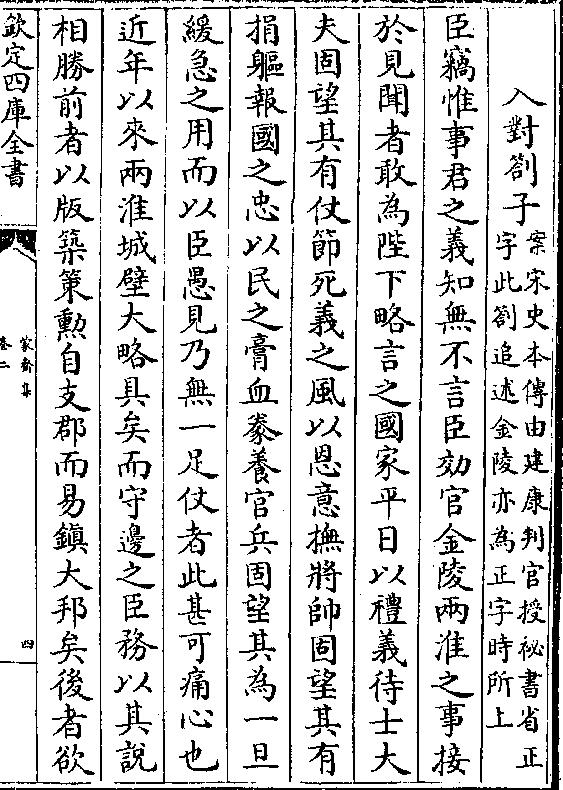 入對劄子
案宋史本傳由建康判官授祕書省正
字此劄追述金陵亦為正字時所上
臣竊惟事君之義知無不言臣効官金陵兩淮之事接
於見聞者敢為陛下略言之國家平日以禮義待士大
夫固望其有仗節死義之風以恩意撫將帥固望其有
捐軀報國之忠以民之膏血豢養官兵固望其為一旦
緩急之用而以臣愚見乃無一足仗者此甚可痛心也
近年以來兩淮城壁大略具矣而守邊之臣務以其説
相勝前者以版築策勲自支郡而易鎮大邦矣後者欲
欽定四庫全書
蒙齋集
卷二
四